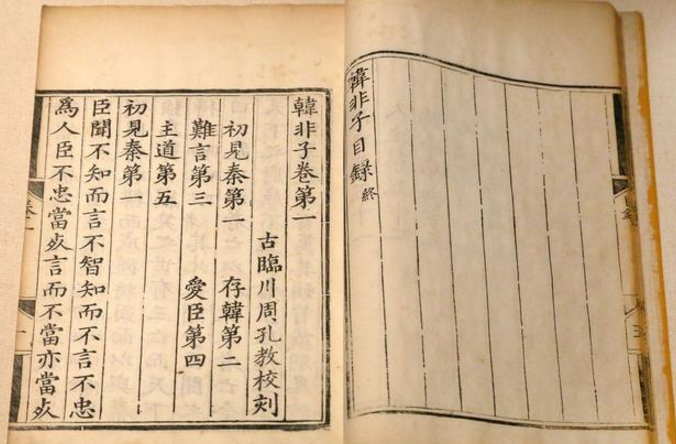 韓非子目録終
韓非子卷第一
古臨川周孔教校刻
初見秦第一　存韓第二
難言第三　愛臣第四
主道第五
初見秦第一
臣聞不知而言不智知而不言不忠
爲人臣不忠當死言而不當亦當死